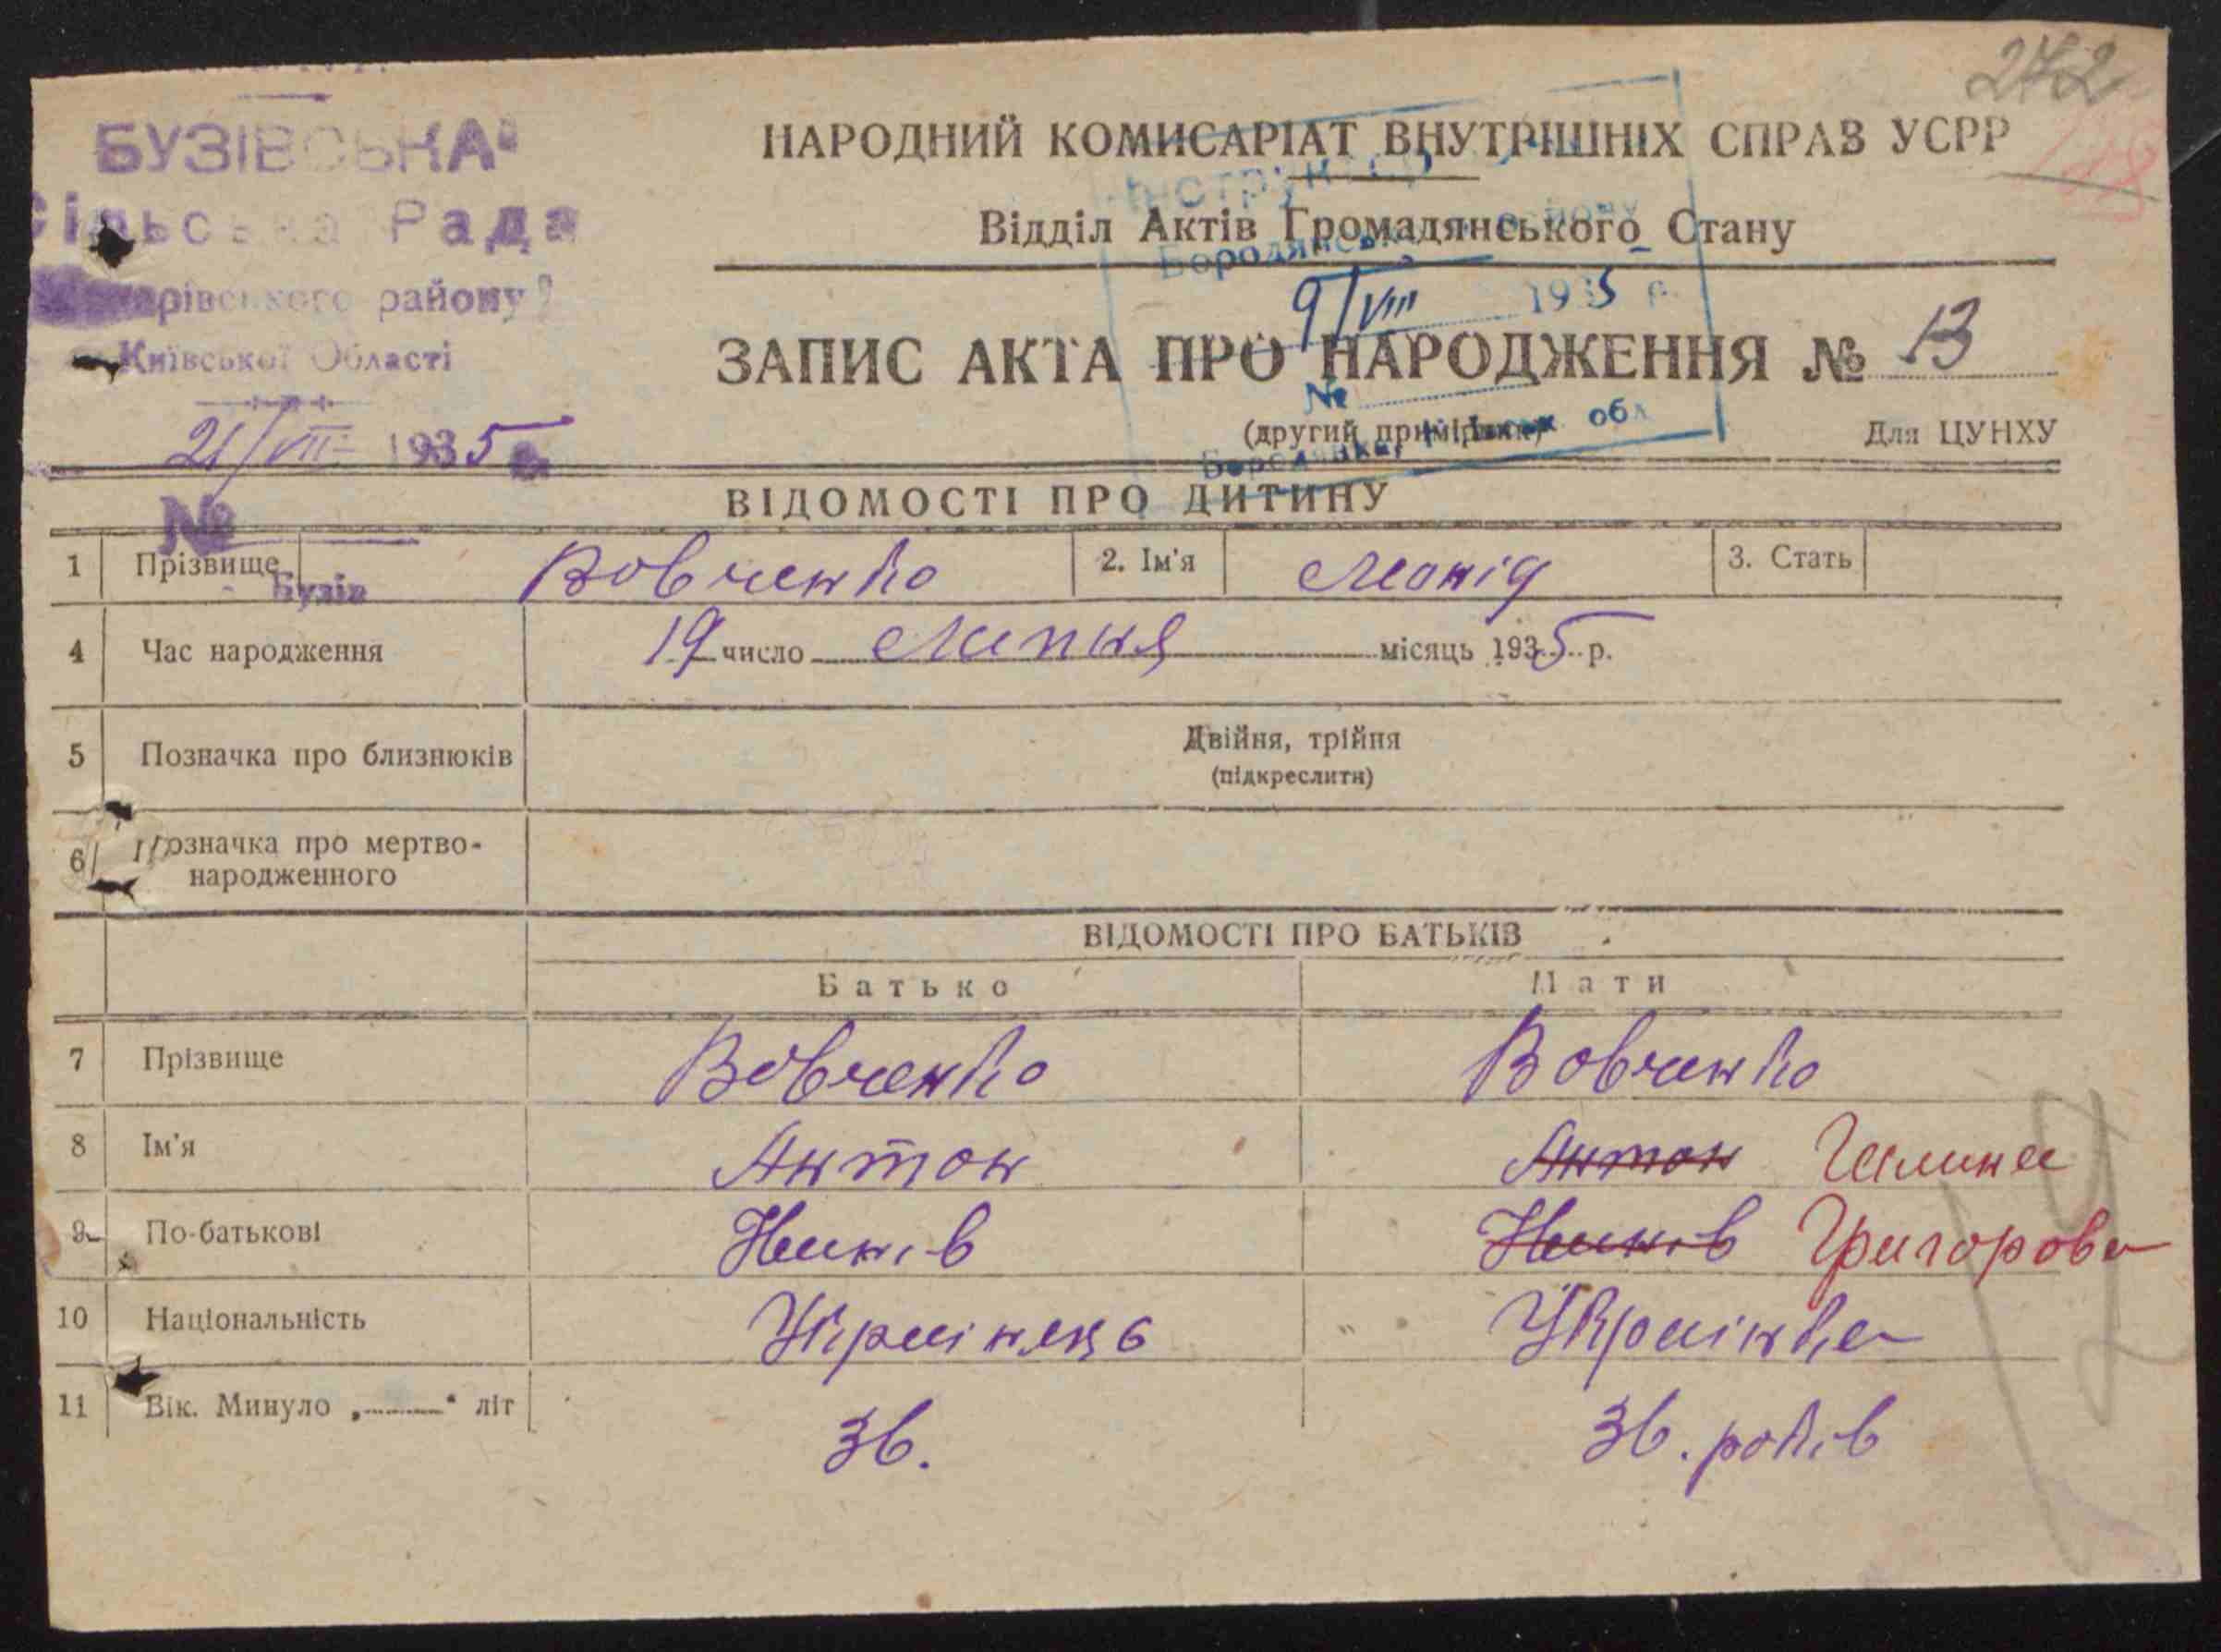 272
БУЗІВСЬКА
Сільська Рада
району
Київської Області
21/VII 1935
№
Бузів
НАРОДНИЙ КОМИСАРІАТ ВНУТРІШНІХ СПРАВ УСРР
Відділ Актів Громадянського Стану
9/VIII 1935 р.
ЗАПИС АКТА ПРО НАРОДЖЕННЯ № 13
№
(другий примірник)
Для ЦУНХУ
обл
ВІДОМОСТІ ПРО ДИТИНУ
1 Прізвище Вовченко 2. Ім'я Леонід 3. Стать
4 Час народження 19 число Липня місяць 1935 р.
5 Позначка про близнюків Двійня, трійня
(підкреслити)
6 Позначка про мертво-
народженного
ВІДОМОСТІ ПРО БАТЬКІВ
Батько Мати
7 Прізвище Вовченко Вовченко
8 Ім'я Антон Антон Галина
9 По-батькові Григорова
10 Національність Українець Українка
11 Вік. Минуло „ “ літ 36. 36. років